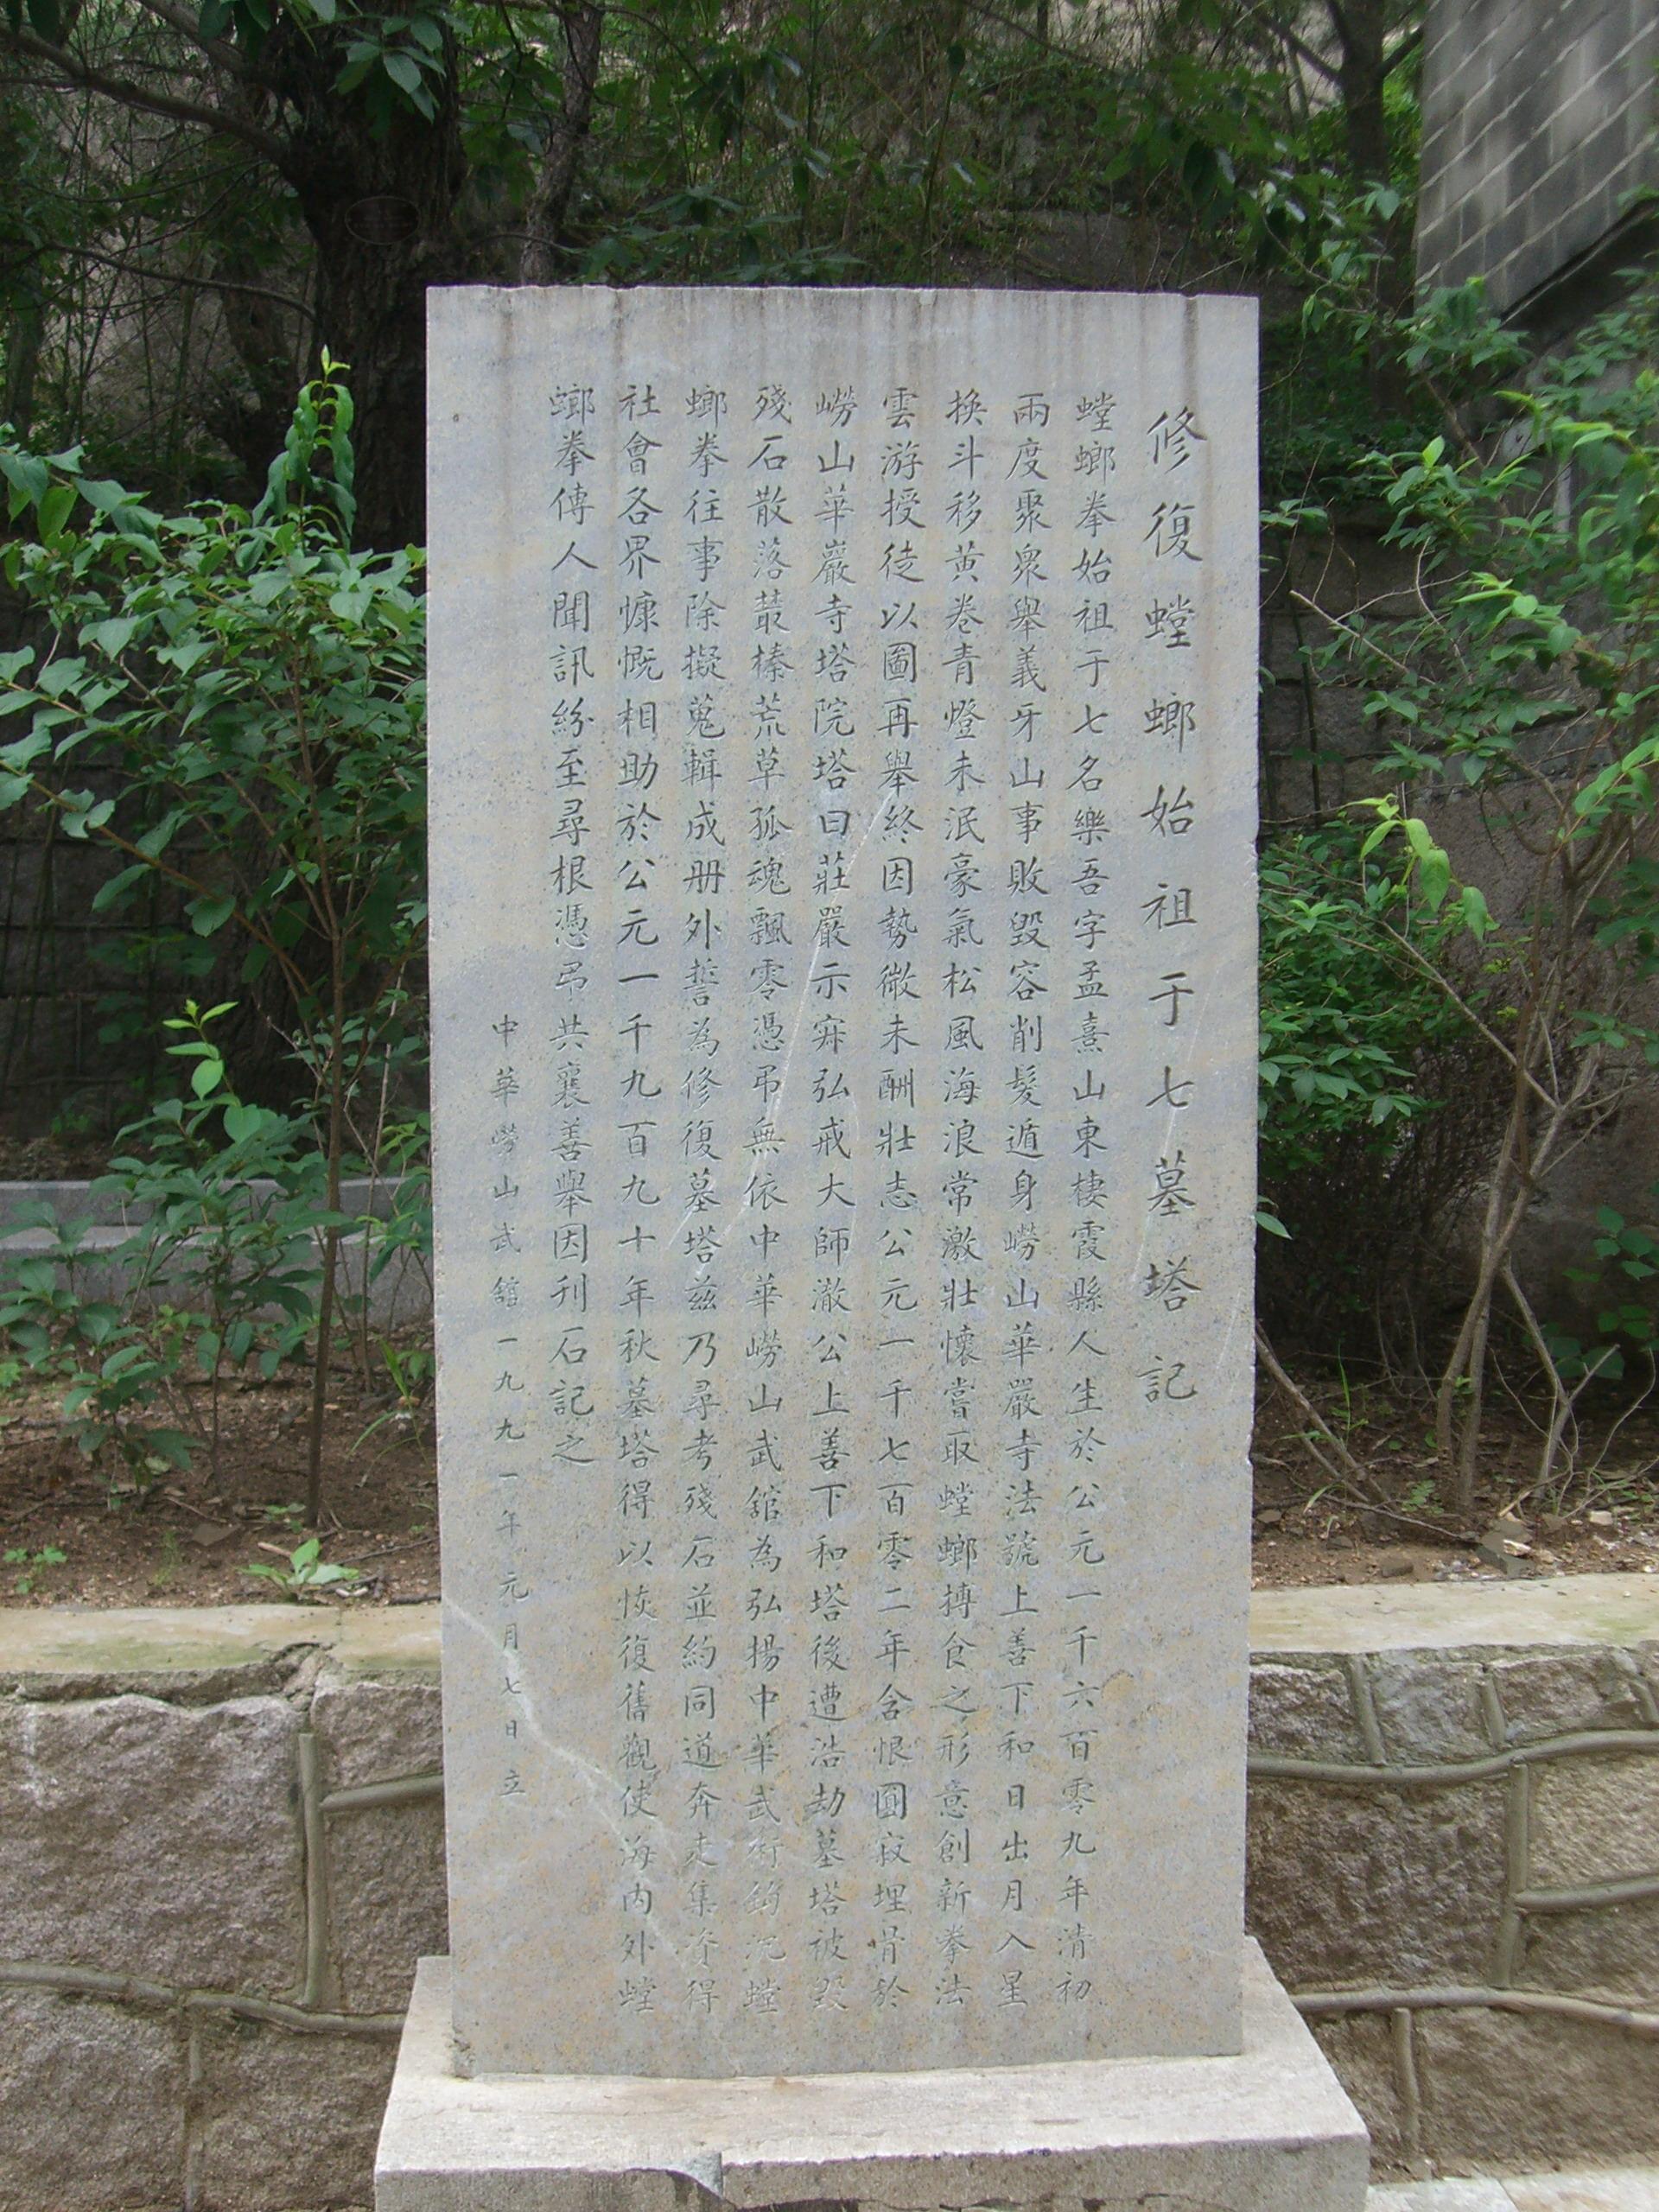 修復螳螂始祖于七墓塔記
螳螂拳始祖于七名樂吾字孟熹山東棲霞縣人生於公元一千六百零九年清初
兩度聚衆舉義牙山事敗毀容削髮遁身嶗山華嚴寺法號上善下和日出月入星
換斗移黄卷青燈未泯豪氣松風海浪常激壯懷嘗取螳螂搏食之形意創新拳法
雲游授徒以圖再舉終因勢微未酬壯志公元一千七百零二年含恨圓寂埋骨於
嶗山華巖寺塔院塔曰莊嚴示寂弘戒大師澈公上善下和塔後遭浩劫墓塔被毀
殘石散落叢榛荒草孤魂飄零憑弔無依中華嶗山武舘為弘揚中華武術鈎沉螳
螂拳往事除擬蒐輯成册外誓為修復墓塔兹乃尋考殘石並約同道奔走集資得
社會各界慷慨相助於公元一千九百九十年秋墓塔得以恢復舊觀使海内外螳
螂拳傳人聞訊紛至尋根憑弔共襄善舉因刊石記之
中華嶗山武舘一九九一年元月七日立